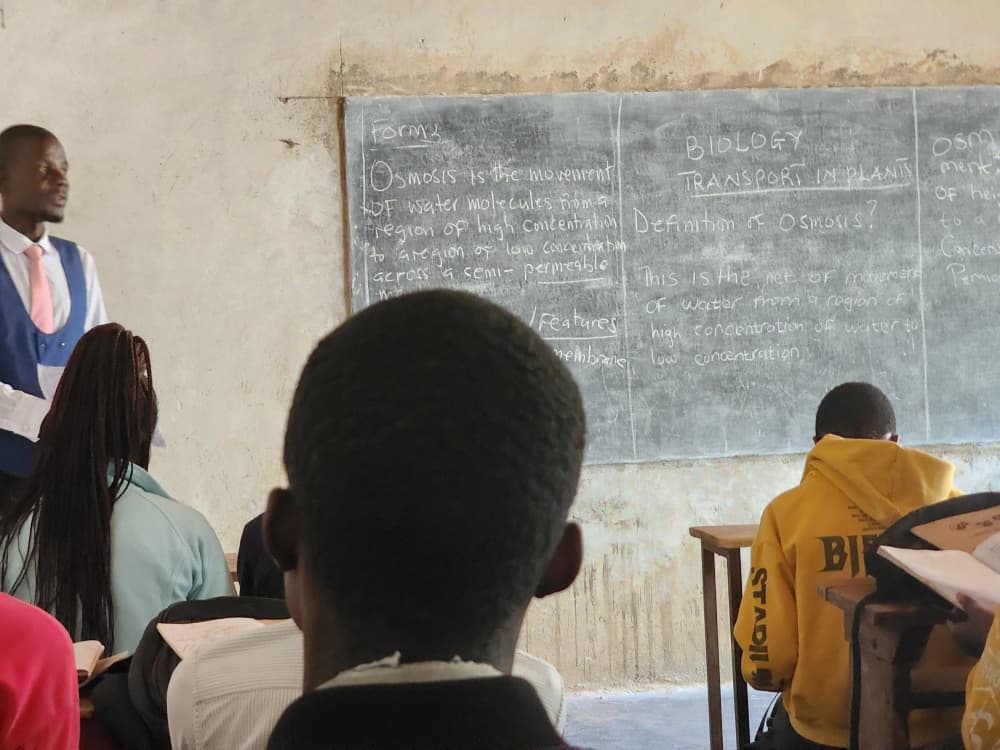 Form 2
Osmosis is the movement
OF water molecules from a
region of high concentration
to a region of low concentration
across a semi-permeable
/Features
membrane
BIOLOGY
TRANSPORT IN PLANTS
Definition of Osmosis?
This is the net of movement
of water from a region of
high concentration of water to
low concentration
ment
OF
to a
Concen
Perm